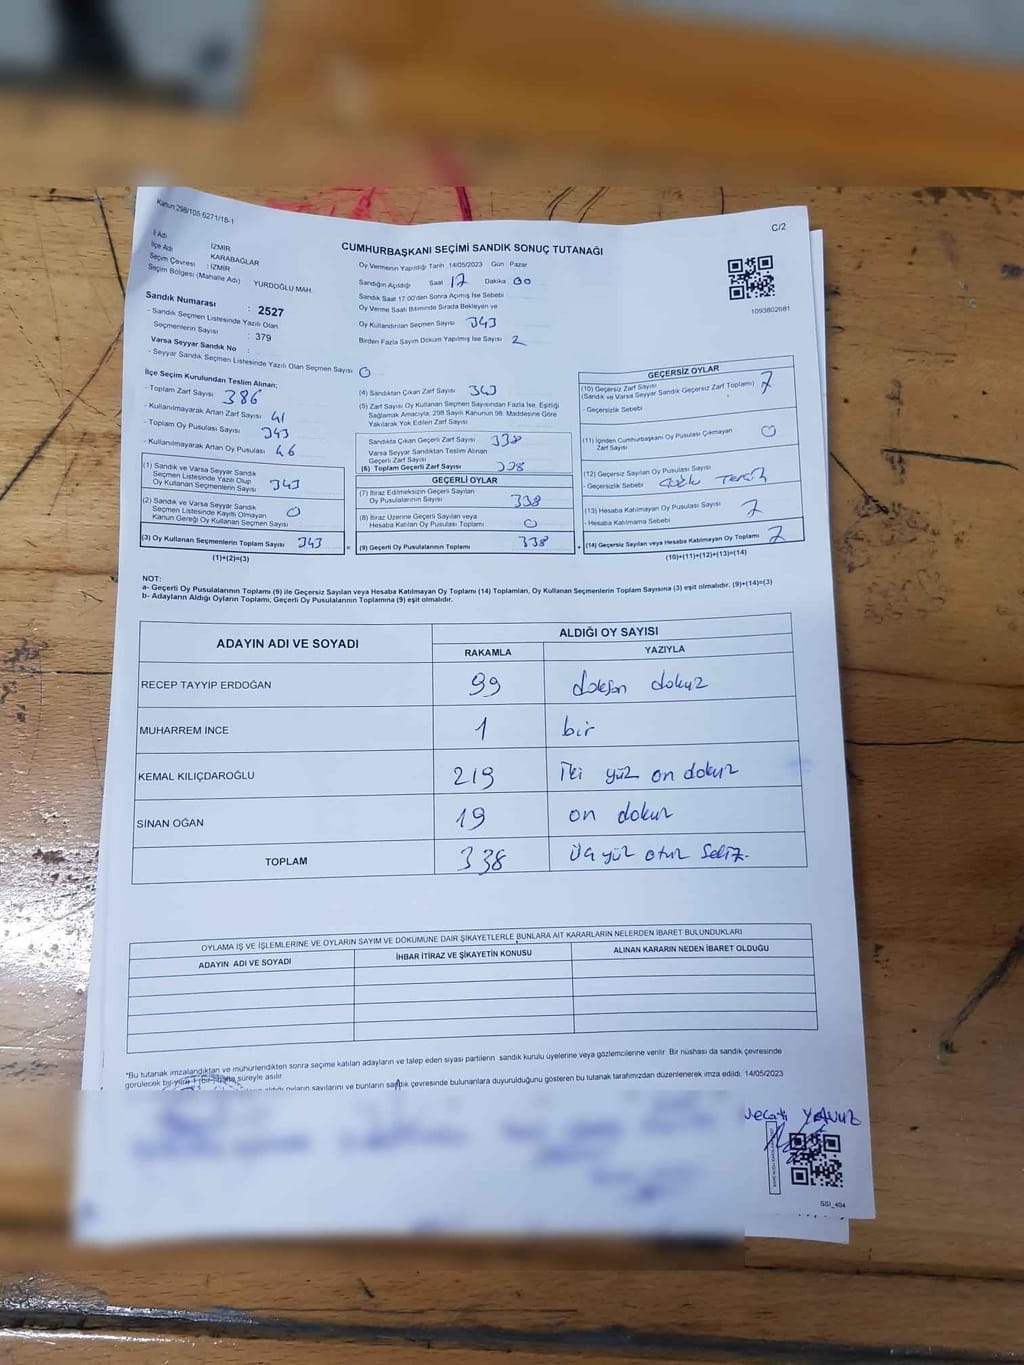 Kanun:298/105 6271/18-1
C/2
CUMHURBAŞKANI SEÇİMİ SANDIK SONUÇ TUTANAĞI
İl Adı İZMİR
İlçe Adı KARABAĞLAR
Seçim Çevresi : İZMİR
Seçim Bölgesi (Mahalle Adı) YURDOĞLU MAH.
Sandık Numarası : 2527
- Sandık Seçmen Listesinde Yazılı Olan
Seçmenlerin Sayısı : 379
Varsa Seyyar Sandık No :
- Seyyar Sandık Seçmen Listesinde Yazılı Olan Seçmen Sayısı 0
Oy Vermenin Yapıldığı Tarih 14/05/2023 Gün Pazar
Sandığın Açıldığı Saat 17 Dakika 00
Sandık Saat 17.00'den Sonra Açımış İse Sebebi
Oy Verme Saati Bitiminde Sırada Bekleyen ve
Oy Kullandırılan Seçmen Sayısı 343
Birden Fazla Sayım Döküm Yapılmış İse Sayısı 2
1093802681
İlçe Seçim Kurulundan Teslim Alınan;
- Toplam Zarf Sayısı 386
- Kullanılmayarak Artan Zarf Sayısı 41
- Toplam Oy Pusulası Sayısı 343
- Kullanılmayarak Artan Oy Pusulası 46
(1) Sandık ve Varsa Seyyar Sandık
Seçmen Listesinde Yazılı Olup
Oy Kullanan Seçmenlerin Sayısı 343
(2) Sandık ve Varsa Seyyar Sandık
Seçmen Listesinde Kayıtlı Olmayan
Kanun Gereği Oy Kullanan Seçmen Sayısı 0
(3) Oy Kullanan Seçmenlerin Toplam Sayısı 343
(1)+(2)=(3)
(4) Sandıktan Çıkan Zarf Sayısı 343
(5) Zarf Sayısı Oy Kullanan Seçmen Sayısından Fazla İse, Eşitliği
Sağlamak Amacıyla; 298 Sayılı Kanunun 98. Maddesine Göre
Yakılarak Yok Edilen Zarf Sayısı
Sandıkta Çıkan Geçerli Zarf Sayısı 338
Varsa Seyyar Sandıktan Teslim Alınan
Geçerli Zarf Sayısı
(6) Toplam Geçerli Zarf Sayısı 338
GEÇERLİ OYLAR
(7) İtiraz Edilmeksizin Geçerli Sayılan
Oy Pusulalarının Sayısı 338
(8) İtiraz Üzerine Geçerli Sayılan veya
Hesaba Katılan Oy Pusulası Toplamı 0
= (9) Geçerli Oy Pusulalarının Toplamı 338 +
GEÇERSİZ OYLAR
(10) Geçersiz Zarf Sayısı
(Sandık ve Varsa Seyyar Sandık Geçersiz Zarf Toplamı) 7
- Geçersizlik Sebebi
(11) İçinden Cumhurbaşkanı Oy Pusulası Çıkmayan
Zarf Sayısı 0
(12) Geçersiz Sayılan Oy Pusulası Sayısı
- Geçersizlik Sebebi Çoklu Tercih
(13) Hesaba Katılmayan Oy Pusulası Sayısı 7
- Hesaba Katılmama Sebebi
(14) Geçersiz Sayılan veya Hesaba Katılmayan Oy Toplamı 7
(10)+(11)+(12)+(13)=(14)
NOT:
a- Geçerli Oy Pusulalarının Toplamı (9) ile Geçersiz Sayılan veya Hesaba Katılmayan Oy Toplamı (14) Toplamları, Oy Kullanan Seçmenlerin Toplam Sayısına (3) eşit olmalıdır. (9)+(14)=(3)
b- Adayların Aldığı Oyların Toplamı, Geçerli Oy Pusulalarının Toplamına (9) eşit olmalıdır.
ADAYIN ADI VE SOYADI ALDIĞI OY SAYISI
RAKAMLA YAZIYLA
RECEP TAYYİP ERDOĞAN 99 doksan dokuz
MUHARREM İNCE 1 bir
KEMAL KILIÇDAROĞLU 219 iki yüz on dokuz
SİNAN OĞAN 19 on dokuz
TOPLAM 338 üç yüz otuz sekiz.
OYLAMA İŞ VE İŞLEMLERİNE VE OYLARIN SAYIM VE DÖKÜMÜNE DAİR ŞİKAYETLERLE BUNLARA AİT KARARLARIN NELERDEN İBARET BULUNDUKLARI
ADAYIN ADI VE SOYADI İHBAR İTİRAZ VE ŞİKAYETİN KONUSU ALINAN KARARIN NEDEN İBARET OLDUĞU
*Bu tutanak imzalandıktan ve mühürlendikten sonra seçime katılan adayların ve talep eden siyasi partilerin sandık kurulu üyelerine veya gözlemcilerine verilir. Bir nüshası da sandık çevresinde
görülecek bir yere 1 (bir) hafta süreyle asılır.
aldığı oyların sayılarını ve bunların sandık çevresinde bulunanlara duyurulduğunu gösteren bu tutanak tarafımızdan düzenlenerek imza edildi. 14/05/2023
Necati YAVUZ
SSI_404